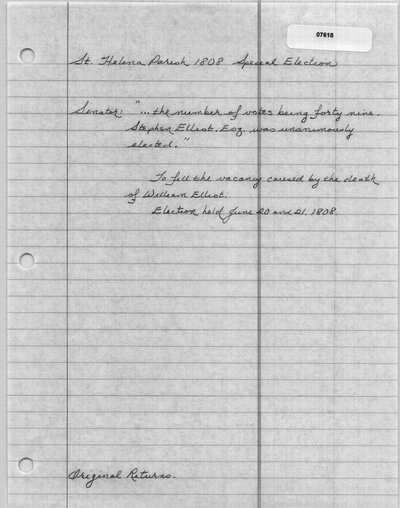 07618
St. Helena Parish 1808 Special Election
Senator: "... the number of votes being forty nine.
Stephen Elliot. Esq. was unanimously
elected."
To fill the vacancy caused by the death
of William Elliot.
Election held June 20 and 21, 1808.
Original Returns.